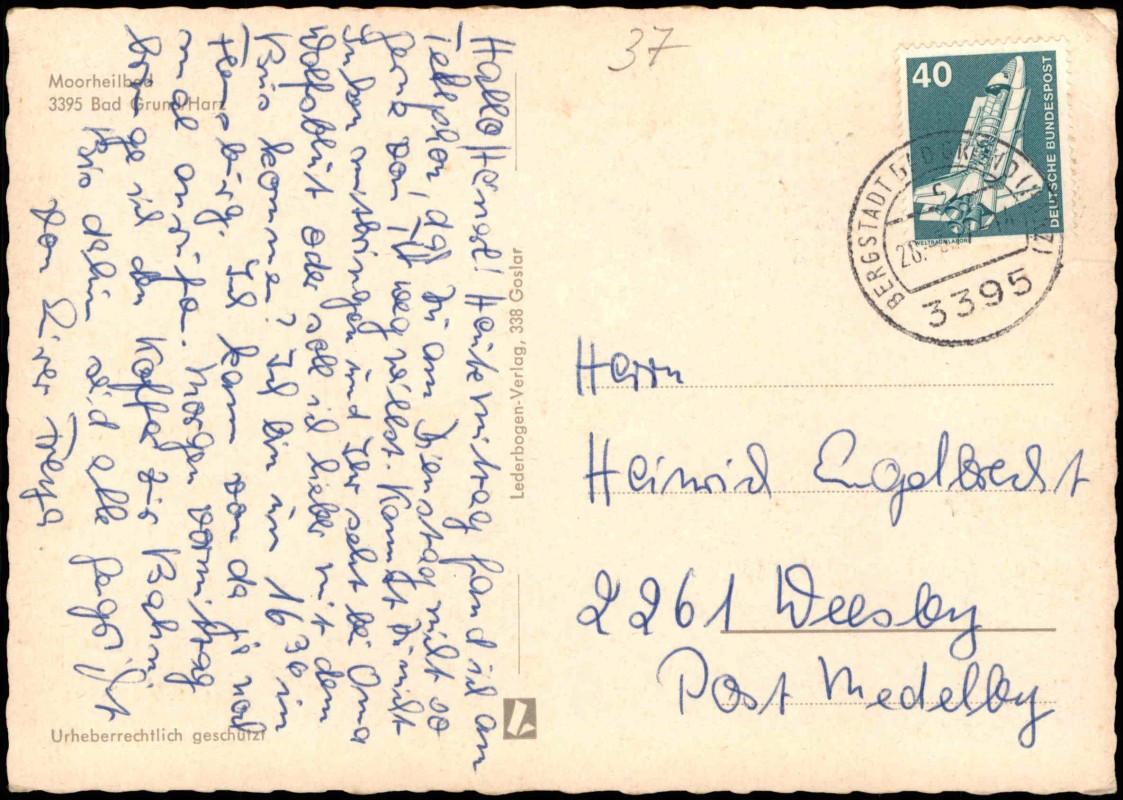 Moorheilbad
3395 Bad Grund/Harz
Hallo Heiner! Heute mittag fand ich am
Telephon, daß Du am Dienstag nicht so
gerne von weg willst. Kannst Du nicht
Juban mitbringen und Ihr seht bei Oma
Wolfsblut oder soll ich lieber mit dem
Bus kommen? Ich bin um 1630 in
Flensburg. Ich kann von da ja noch
mal anrufen. Morgen vormittag
bringe ich den Koffer zur Bahn.
Bis dahin seid alle gegrüßt
von Eurer Freya
Urheberrechtlich geschützt
Lederbogen-Verlag, 338 Goslar
37
40
DEUTSCHE BUNDESPOST
WELTRAUMLABOR
BERGSTADT BAD GRUND (HARZ)
3395
Herrn
Heinrich Engelbrecht
2261 Weesby
Post Medelby